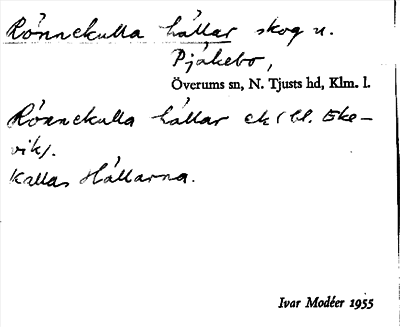 Rönnekulla hållar skog u.
Pjåkebo,
Överums sn, N. Tjusts hd, Klm. l.
Rönnekulla hållar ek (bl. Eke-
vik).
Kallas Hållarna.
Ivar Modéer 1955